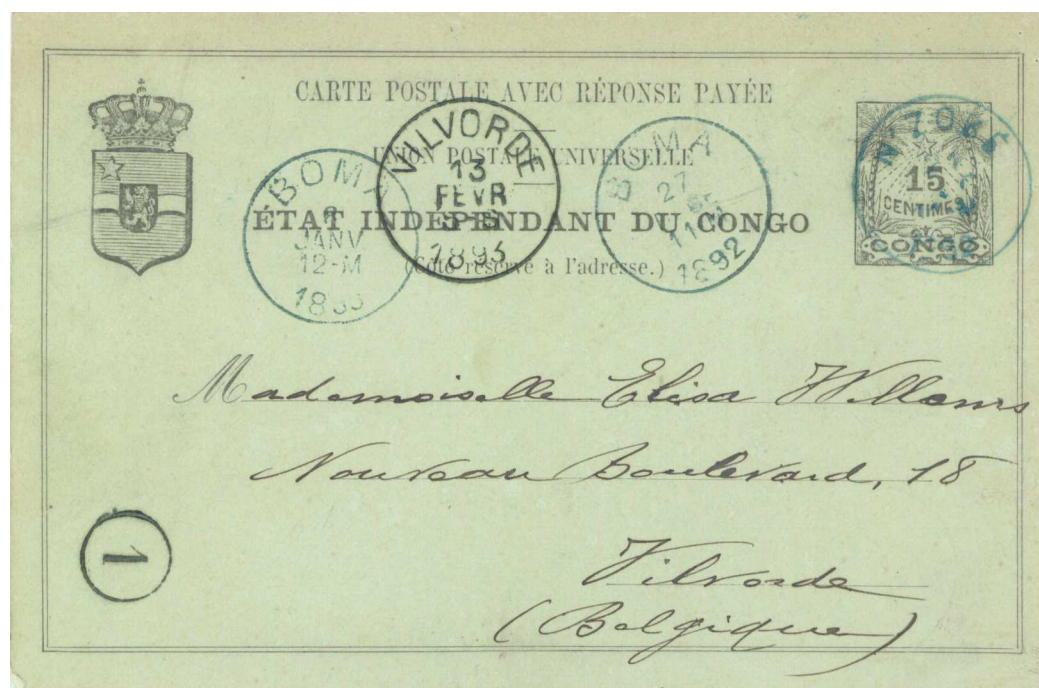 CARTE POSTALE AVEC RÉPONSE PAYÉE
UNION POSTALE UNIVERSELLE
ÉTAT INDÉPENDANT DU CONGO
(Côté réservé à l'adresse.)
VILVORDE
13
FEVR
1893
BOMA
JANV
12-M
BOMA
27
11
1892
15
CENTIMES
CONGO
Mademoiselle Elisa Willems
Nouveau Boulevard, 18
Vilvorde
(Belgique)
1